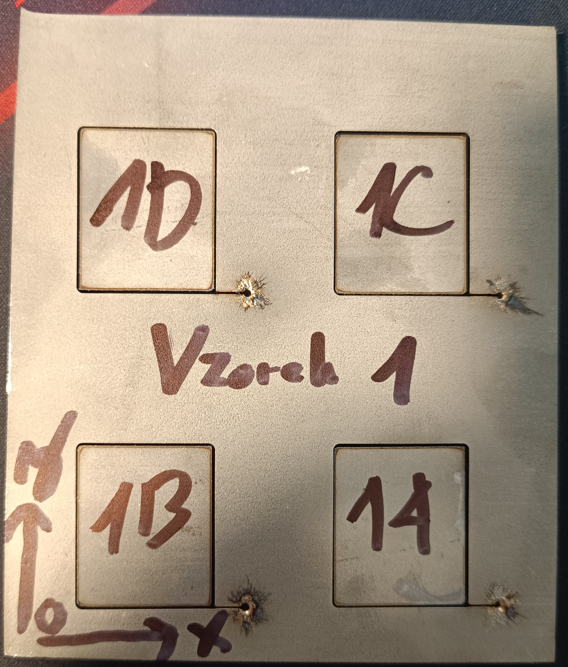 1D 1C
Vzorek 1
1B 1A
y
0 x